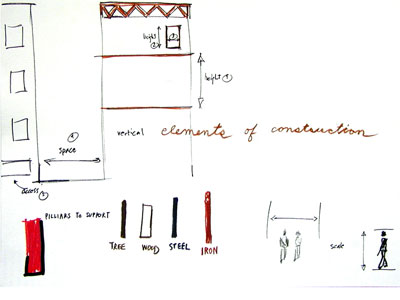 height
②
③
height ①
④
space
vertical elements of construction
access ⑤
PILLIARS TO SUPPORT
TREE WOOD STEEL IRON
scale